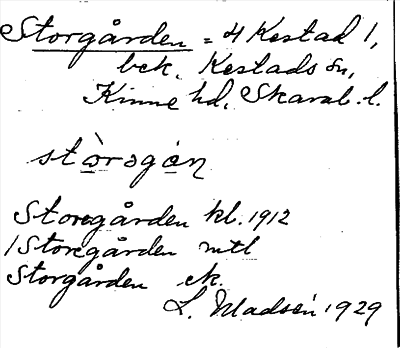 Storgården = 4 Kestad 1,
bek. Kestads sn,
Kinne hd. Skarab. l.
stòrəgán
Storegården kl. 1912
1 Storegården mtl
Storgården ek.
L. Madsén 1929